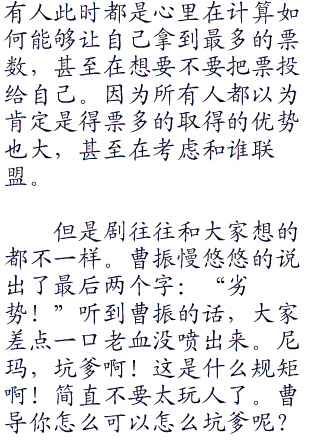 有人此时都是心里在计算如
何能够让自己拿到最多的票
数，甚至在想要不要把票投
给自己。因为所有人都以为
肯定是得票多的取得的优势
也大，甚至在考虑和谁联
盟。
但是剧往往和大家想的
都不一样。曹振慢悠悠的说
出了最后两个字：“劣
势！”听到曹振的话，大家
差点一口老血没喷出来。尼
玛，坑爹啊！这是什么规矩
啊！简直不要太玩人了。曹
导你怎么可以怎么坑爹呢？